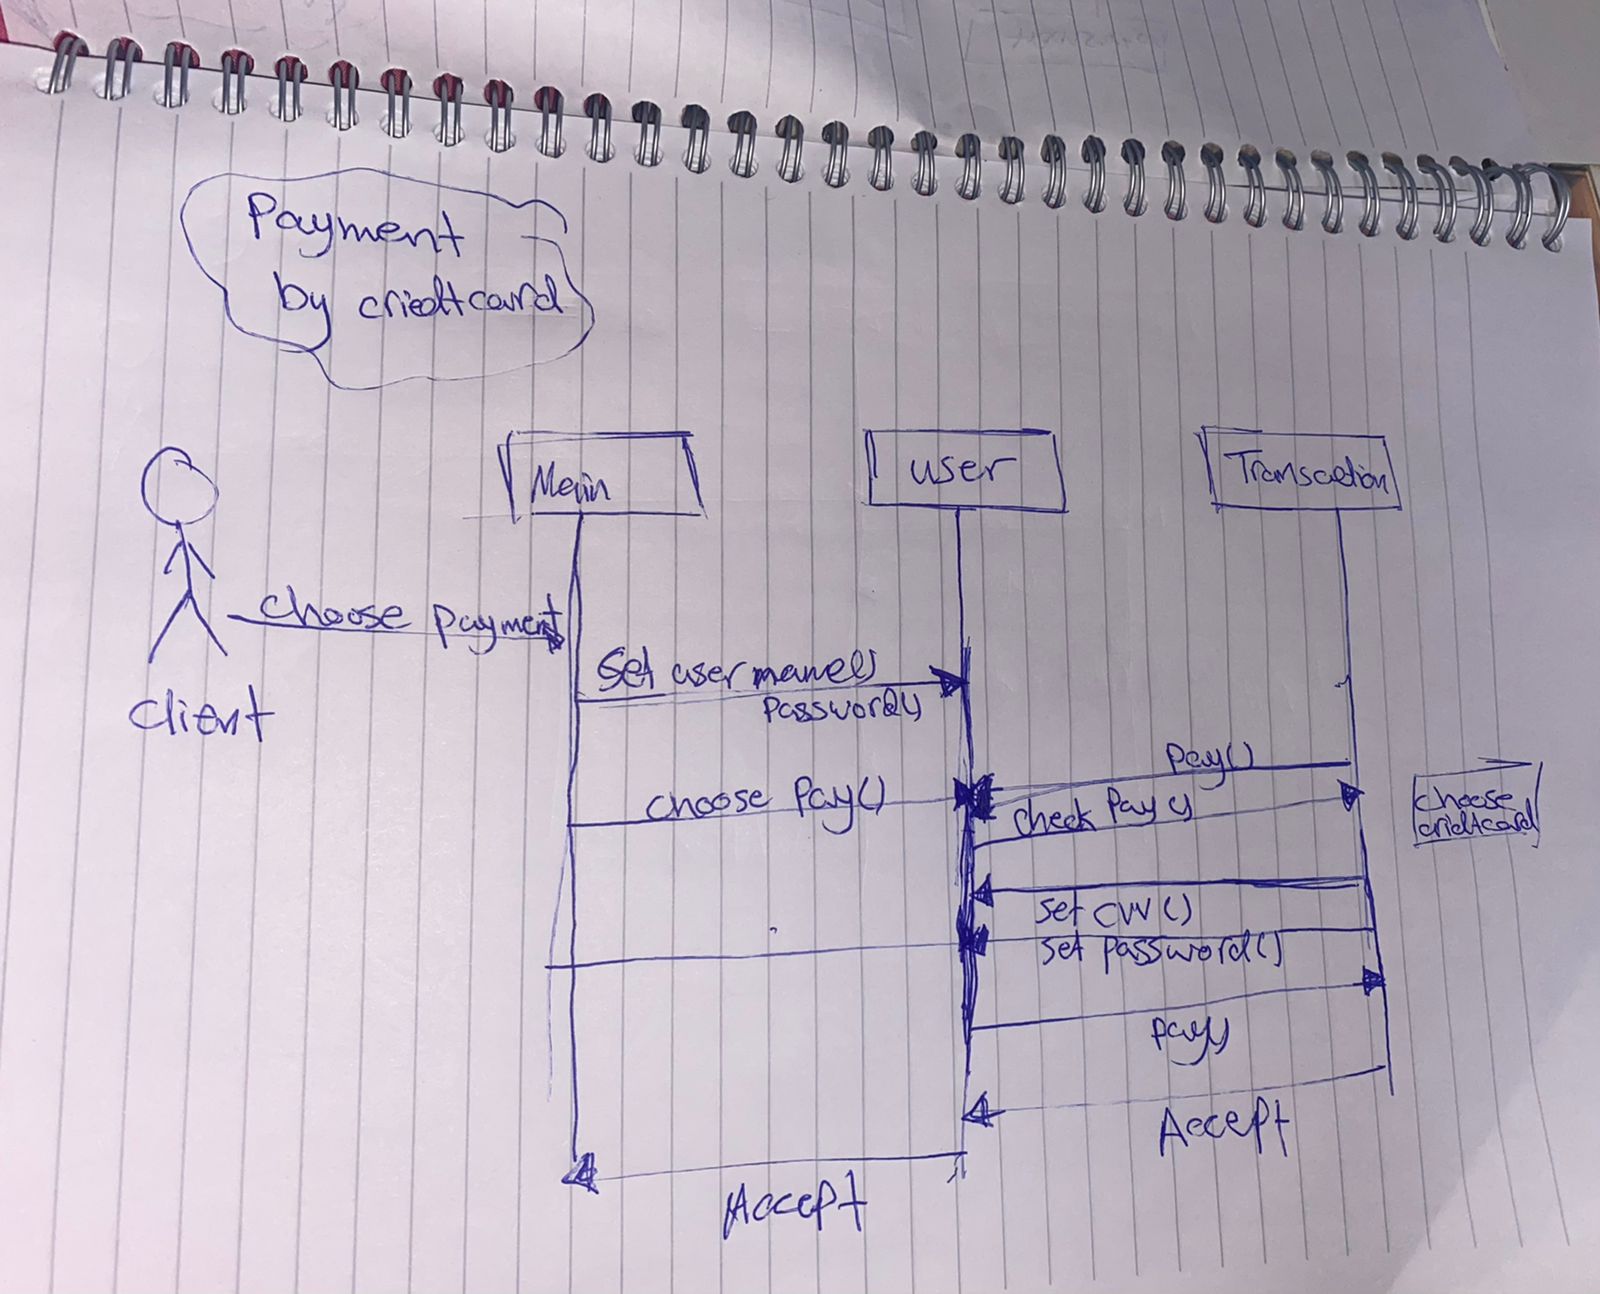 Payment
by criedtcard
Main
user
Transaction
choose payment
client
Set username()
Password()
Pay()
choose Pay()
check Pay()
choose
cridtcard
set CVV()
set password()
pay()
Accept
Accept